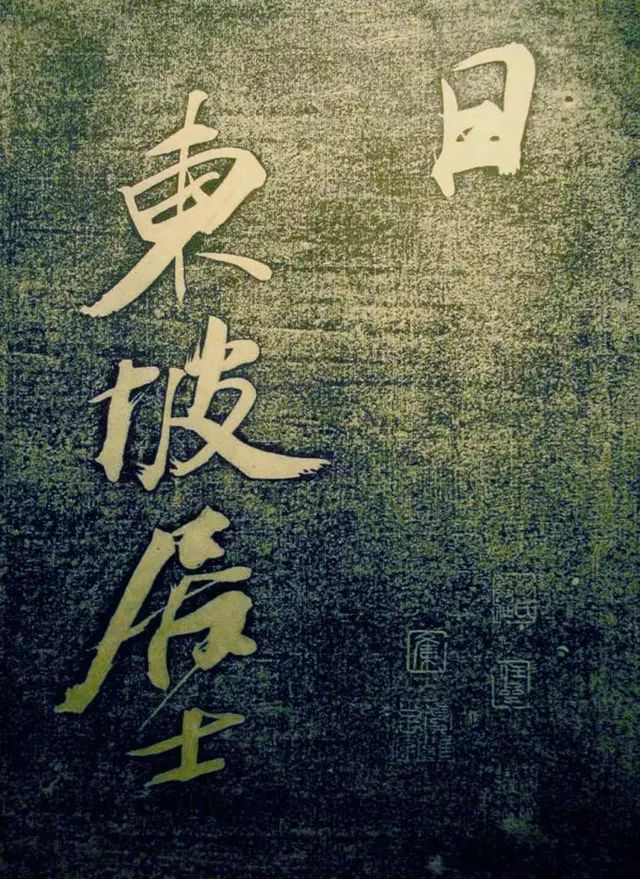 日
東坡居士